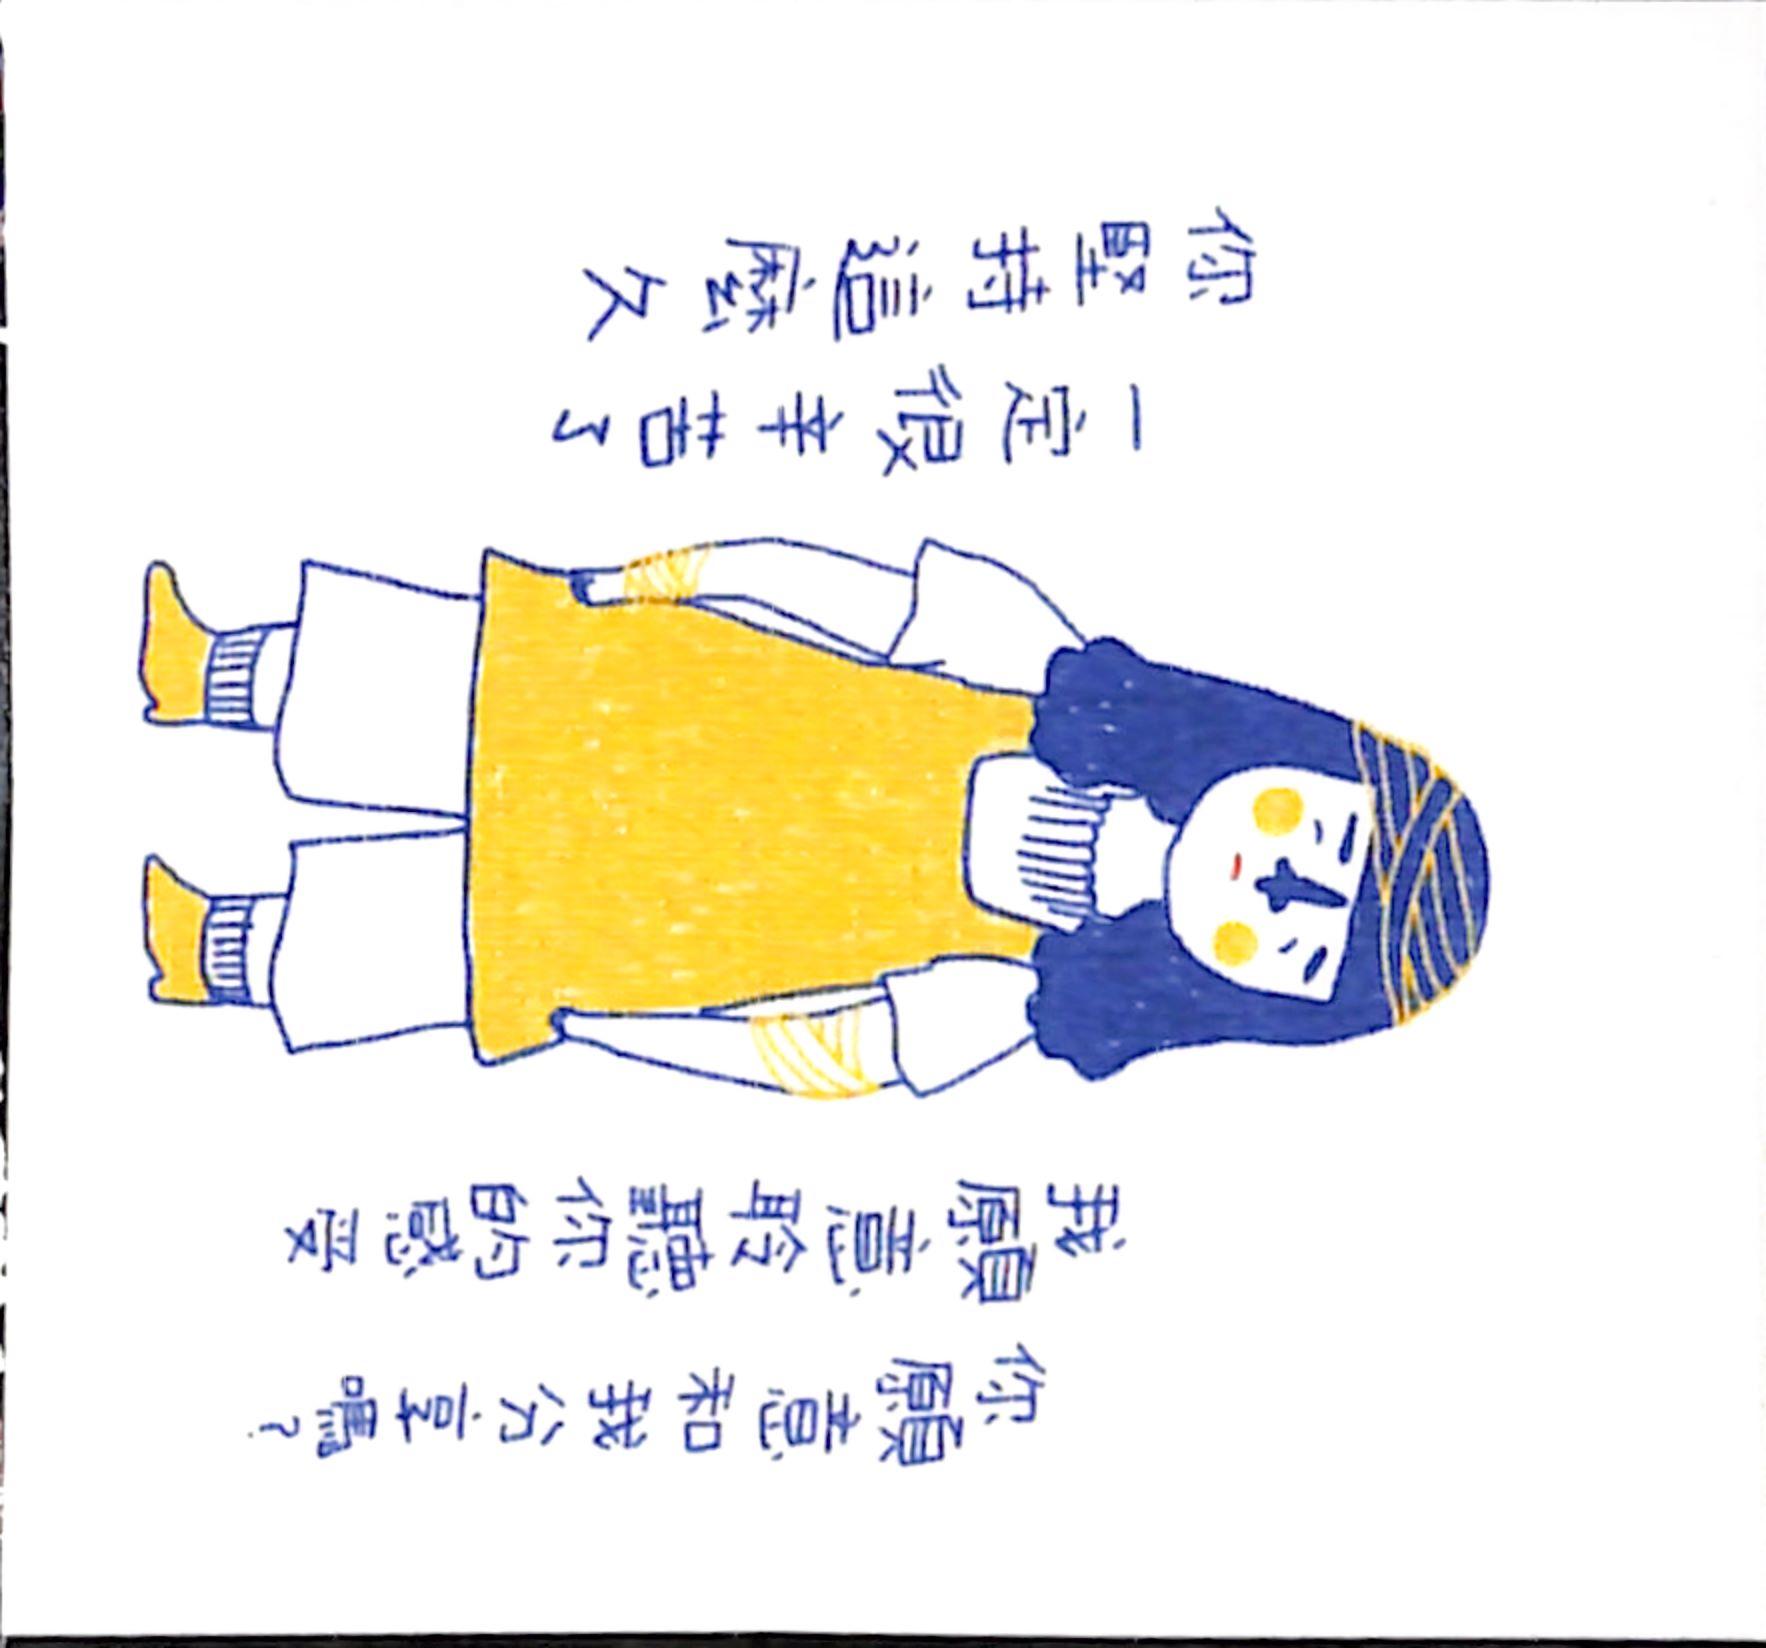 你堅持這麼久
一定很辛苦了
我願意聆聽你的感受
你願意和我分享嗎?